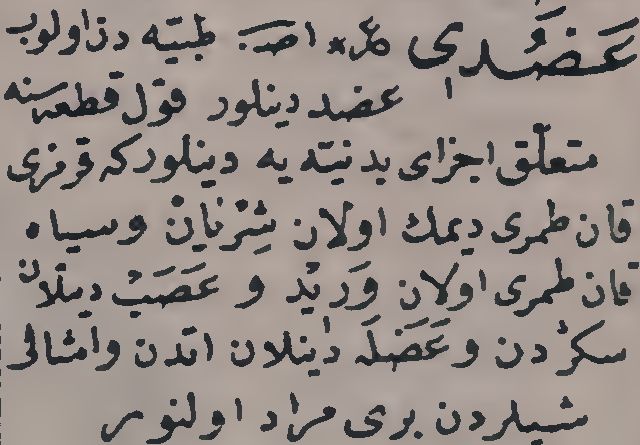 عَضُدِی عر * اصـ طبیّه دن اولوب
عضد دینلور قول قطعه سنه
متعلّق اجزای بدنیّه یه دینلورکه قرمزی
قان طمری دیمك اولان شِرْیَانْ وسیاه
قان طمری اولان وَرِیْد و عَصَبْ دینلان
سکردن و عَضَلَه دینلان اتدن وامثالی
شیلردن بری مراد اولنور